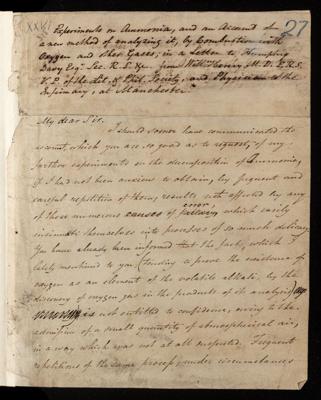 XXXI
27
Experiments on Ammonia, and an Account of
a new method of analyzing it, by Combustion with
Oxygen and other Gases; in a Letter to Humphry
Davy Esq. Sec. R.S. &c. from William Henry, M.D. F.R.S.
V.P. of the Lit. & Phil. Society, and Physician to the
Infirmary, at Manchester.
My dear Sir,
I should sooner have communicated the
account, which you are so good as to request, of my
further experiments on the decomposition of Ammonia,
if I had not been anxious to obtain, by frequent and
careful repetition of them, results not affected by any
of those numerous causes of error, which easily
insinuate themselves into processes of so much delicacy.
You have already been informed that the fact, which I
lately mentioned to you (tending to prove the existence of
oxygen as an element of the volatile alkali, by the
discovery of oxygen gas in the products of its analysis)
is not entitled to confidence, owing to the
admission of a small quantity of atmospherical air,
in a way which was not at all suspected. Frequent
repetitions of the same process, under circumstances